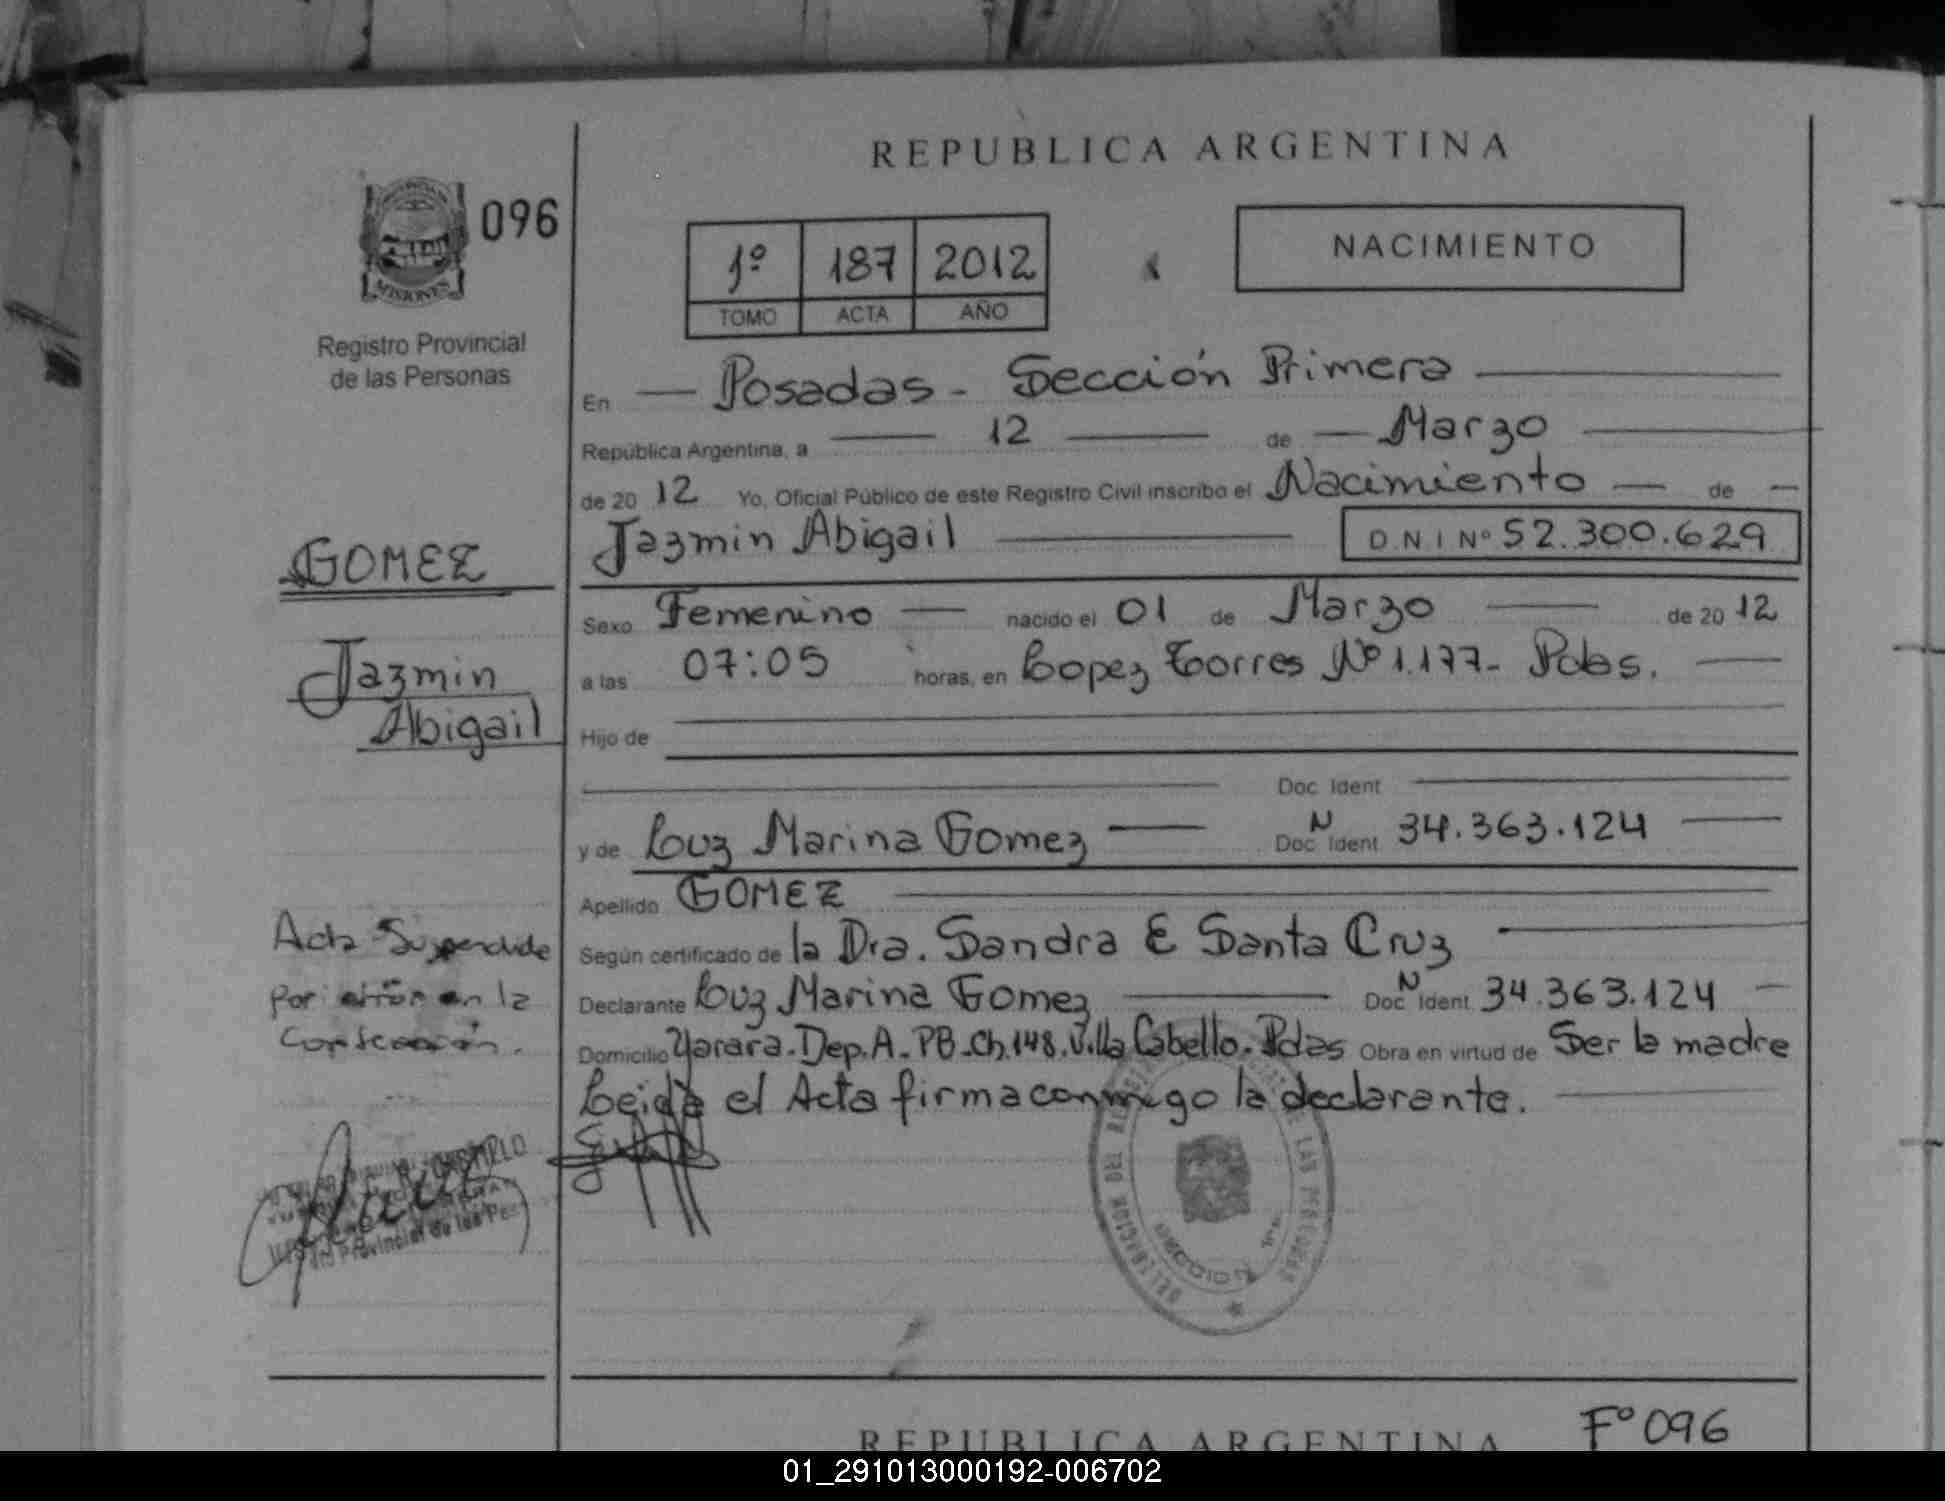 REPUBLICA ARGENTINA
096
MISIONES
Registro Provincial
de las Personas
1º 187 2012
TOMO ACTA AÑO
NACIMIENTO
En — Posadas - Sección Primera
República Argentina, a 12 de — Marzo
de 20 12 Yo, Oficial Público de este Registro Civil inscribo el Nacimiento — de —
Jazmin Abigail D N I Nº 52.300.629
GOMEZ
Jazmin
Abigail
Sexo Femenino — nacido el 01 de Marzo — de 20 12
a las 07:05 horas, en Lopez Torres Nº 1.177- Pdas. —
Hijo de
Doc Ident
y de Luz Marina Gomez — Doc N Ident 34.363.124 —
Apellido GOMEZ
Según certificado de la Dra. Sandra E Santa Cruz
Declarante Luz Marina Gomez — Doc N Ident 34.363.124 —
Domicilio Yarara. Dep. A. PB. Ch. 148. Villa Cabello. Pdas Obra en virtud de Ser la madre
Leida el Acta firma conmigo la declarante.
Acta Suspendida
por error en la
DELEGACION DEL LAS PERSONAS
SECCION
Provincial de las Pe
REPUBLICA ARGENTINA
Fº 096
01_291013000192-006702